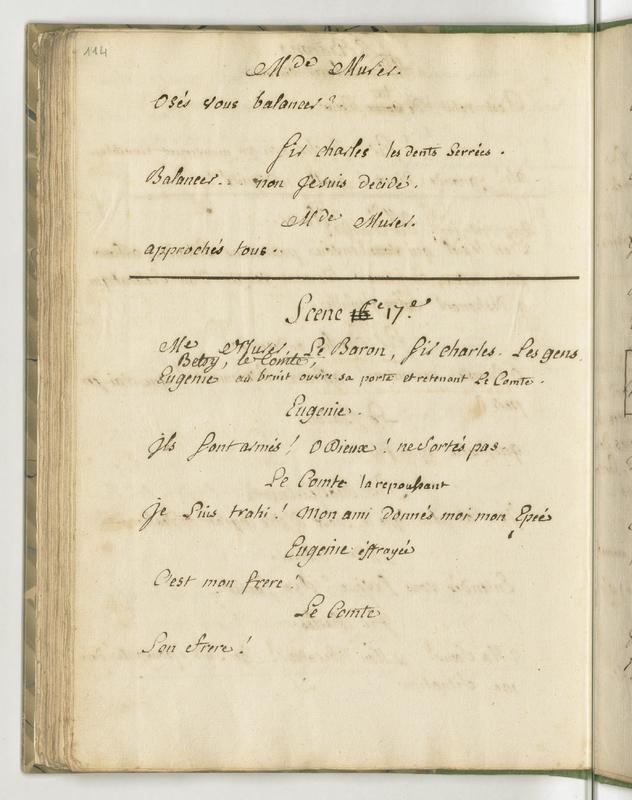 114
Mde Murer.
Osés vous balancer?
Sir charles les dents serrées.
Balancer.. non Je suis decidé.
Mde Murer.
approchés tous..
Scene 17.e
Me Murer, Le Baron, Sir charles. Les gens.
Betsy, le Comte,
Eugenie au bruit ouvre sa porte et retenant Le Comte.
Eugenie.
ils sont armés! O Dieux! ne sortés pas.
Le Comte la repoussant
je suis trahi! Mon ami donnés moi mon Epée
Eugenie éffrayée
C'est mon frere!
Le Comte
Son frere!